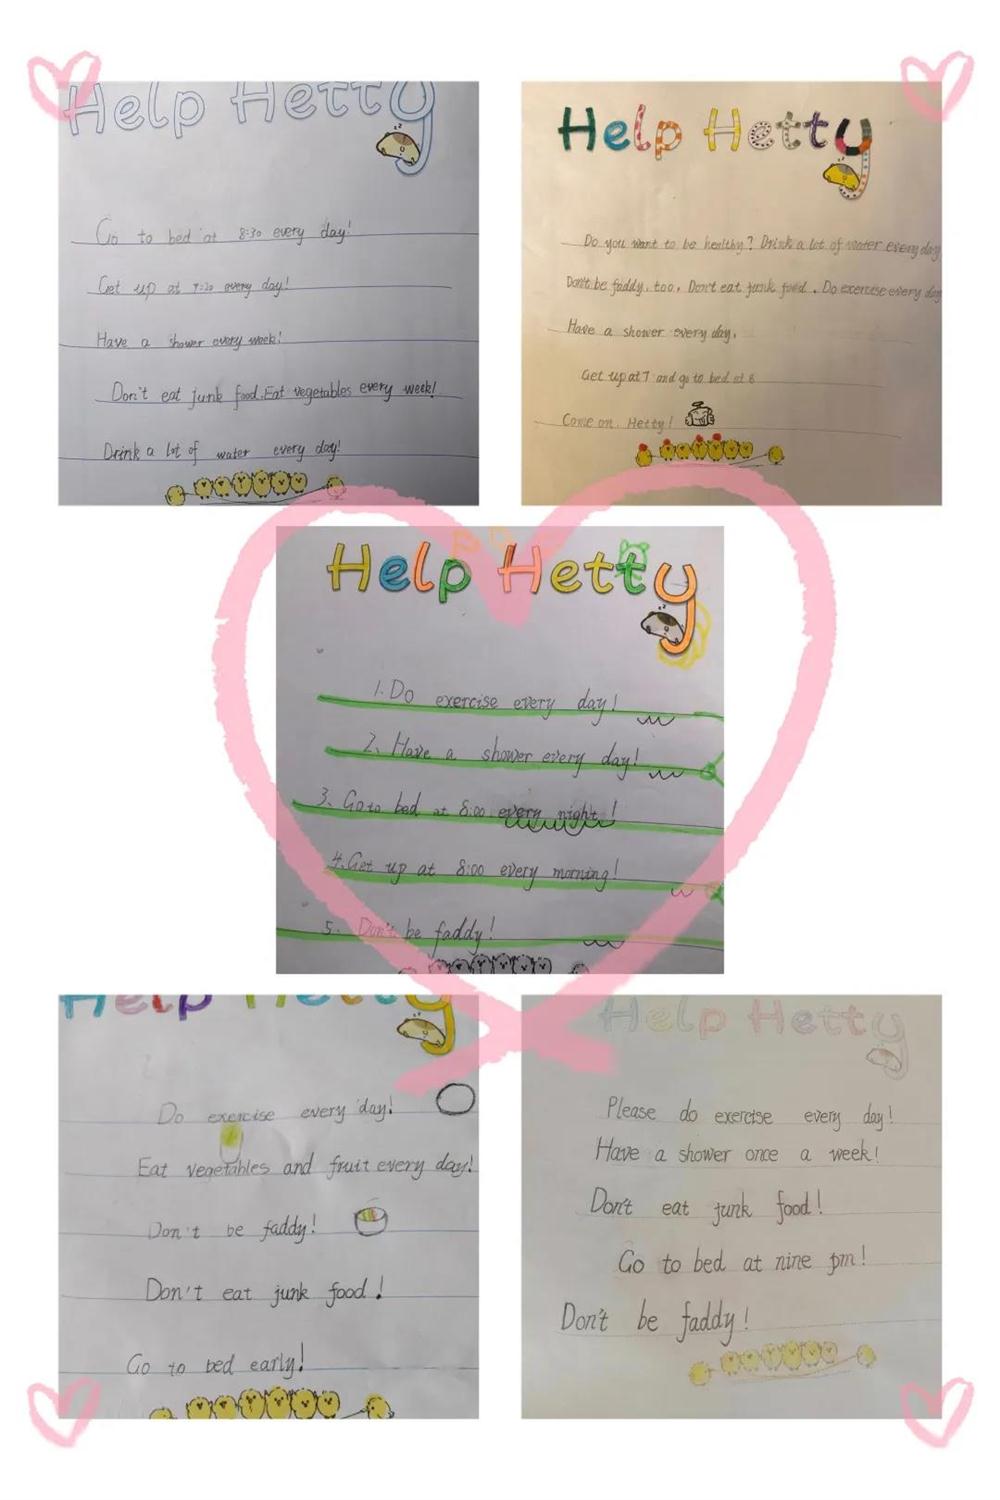 Help Hetty
Go to bed at 8:30 every day!
Get up at 7:20 every day!
Have a shower every week!
Don't eat junk food. Eat vegetables every week!
Drink a lot of water every day!
Help Hetty
Do you want to be healthy? Drink a lot of water every day
Don't be faddy, too, Don't eat junk food. Do exercise every day
Have a shower every day.
Get up at 7 and go to bed at 8
Come on, Hetty!
Help Hetty
1. Do exercise every day!
2. Have a shower every day!
3. Go to bed at 8:00 every night!
4. Get up at 8:00 every morning!
5. Don't be faddy!
Help Hetty
Do exercise every day!
Eat vegetables and fruit every day!
Don't be faddy!
Don't eat junk food!
Go to bed early!
Help Hetty
Please do exercise every day!
Have a shower once a week!
Don't eat junk food!
Go to bed at nine pm!
Don't be faddy!